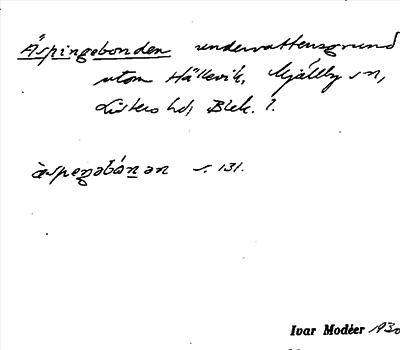 Äspingebonden undervattensgrund
utom Hällevik, Mjällby sn,
Listers hd, Blek. l.
äspeŋabónan s. 131.
Ivar Modéer 1930